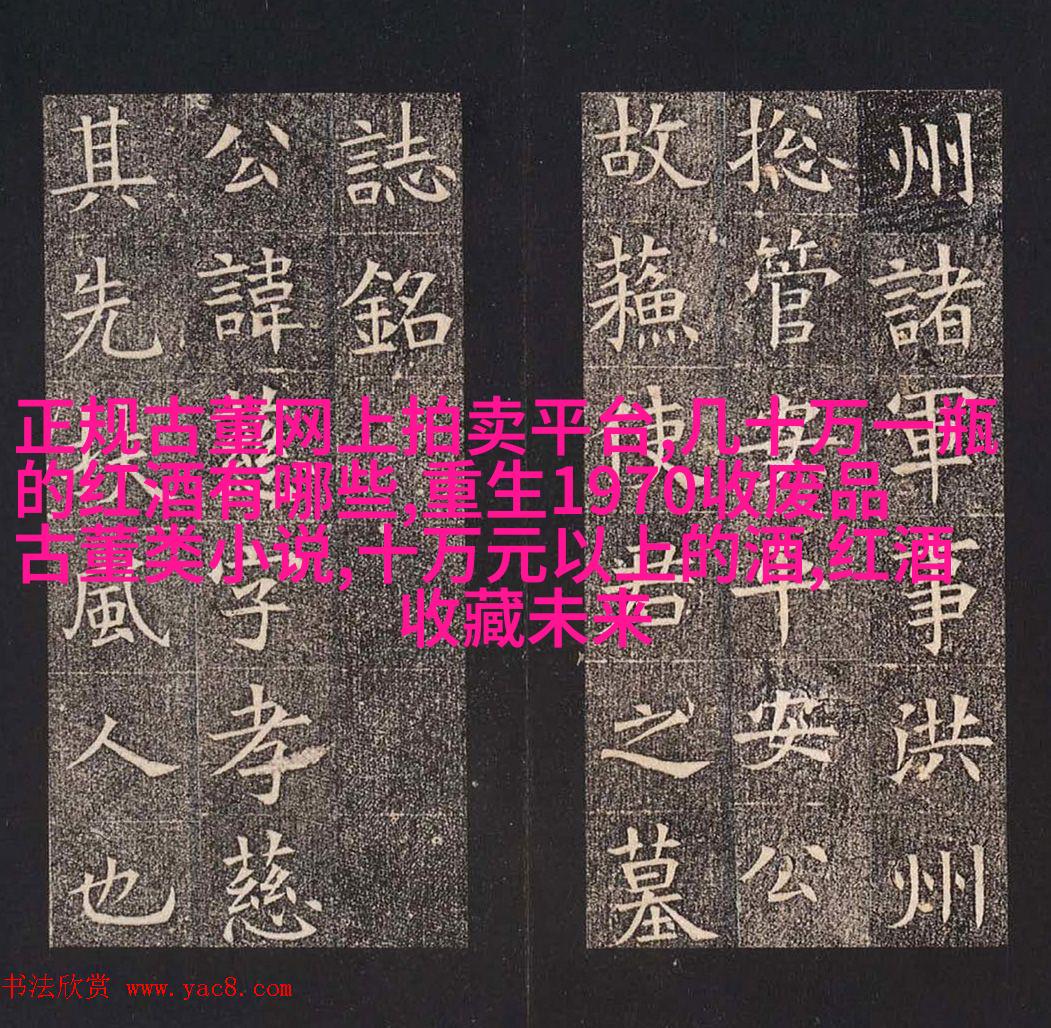 州諸軍事洪州
捴管安平安公
故蘓使君之墓
誌銘
公諱慈字孝慈
其先扶風人也
正规古董网上拍卖平台,几十万一瓶
的红酒有哪些,重生1970收废品
古董类小说,十万元以上的酒,红酒
收藏未来
书法欣赏 www.yac8.com